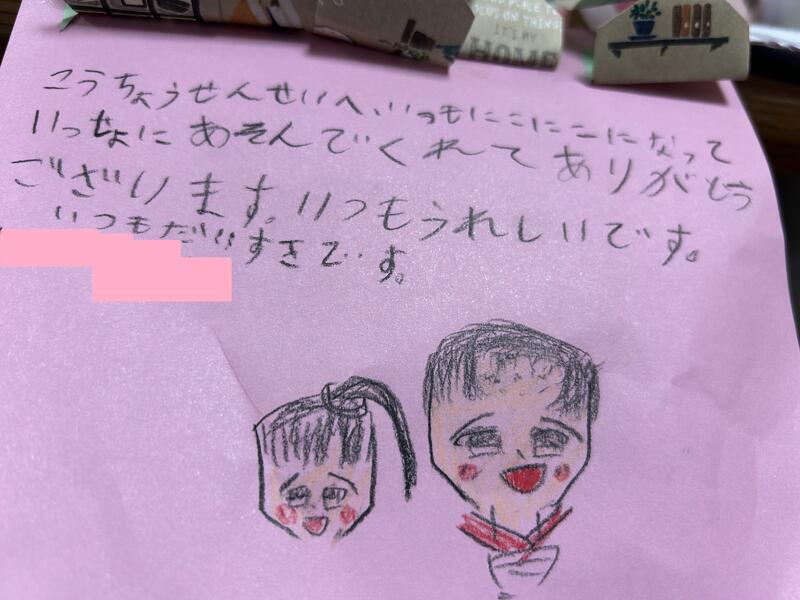 PLACE
FOCUS ON THING
IT'S MY
HOME
こうちょうせんせいへ、いつもにこにこにになって
いっちょにあそんでくれてありがとう
ございます。いつもうれしいです。
いつもだいすきです。